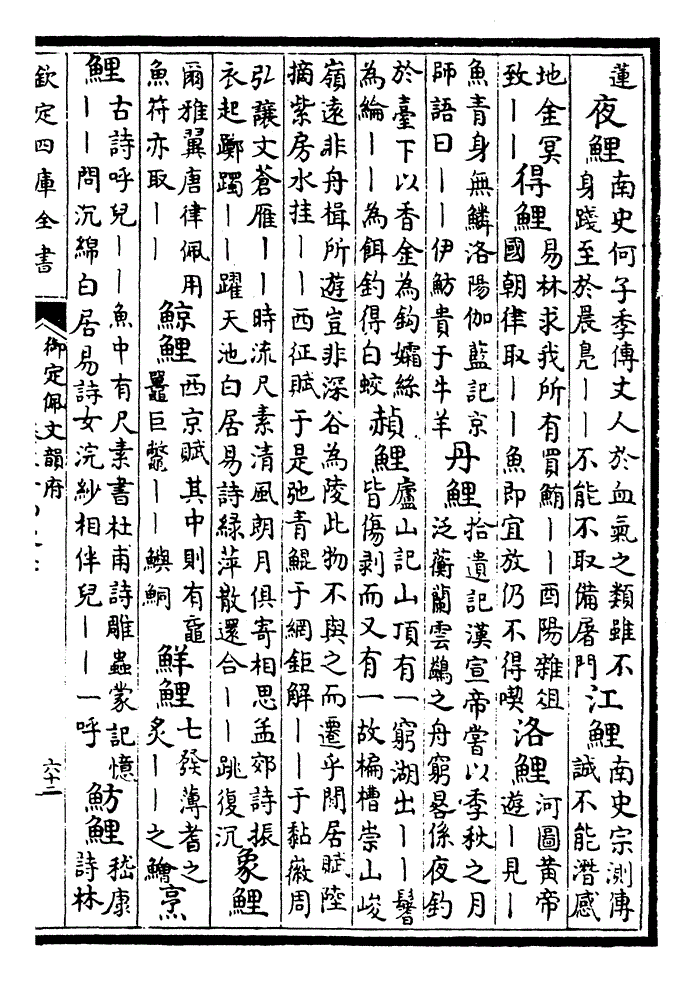 蓮
夜鯉
南史何子季傳丈人於血氣之類雖不
身踐至於晨鳧丨丨不能不取備屠門
江鯉
南史宗測傳
誠不能潛感
地金冥
致丨丨
得鯉
易林求我所有買鮪丨丨酉陽雜俎
國朝律取丨丨魚即宜放仍不得喫
洛鯉
河圖黃帝
遊丨見丨
魚青身無鱗洛陽伽藍記京
師語曰丨丨伊魴貴于牛羊
丹鯉
拾遺記漢宣帝嘗以季秋之月
泛蘅蘭雲鷁之舟窮晷係夜釣
於臺下以香金為鈎孀絲
為綸丨丨為餌釣得白蛟
赬鯉
廬山記山頂有一窮湖出丨丨鬐
皆傷剥而又有一故楄槽崇山峻
嶺遠非舟楫所遊豈非深谷為陵此物不與之而遷乎閒居賦陸
摘紫房水挂丨丨西征賦于是弛青鯤于網鉅解丨丨于黏徽周
弘讓文蒼雁丨丨時流尺素清風朗月俱寄相思孟郊詩振
衣起躑躅丨丨躍天池白居易詩綠萍散還合丨丨跳復沉
象鯉
爾雅翼唐律佩用
魚符亦取丨丨
鯨鯉
西京賦其中則有黿
鼉巨鱉丨丨鱮鮦
鮮鯉
七發薄耆之
炙丨丨之鱠
烹
鯉
古詩呼兒丨丨魚中有尺素書杜甫詩雕蟲蒙記憶
丨丨問沉綿白居易詩女浣紗相伴兒丨丨一呼
魴鯉
嵇康
詩林
欽定四庫全書
御定佩文韻府
六十二